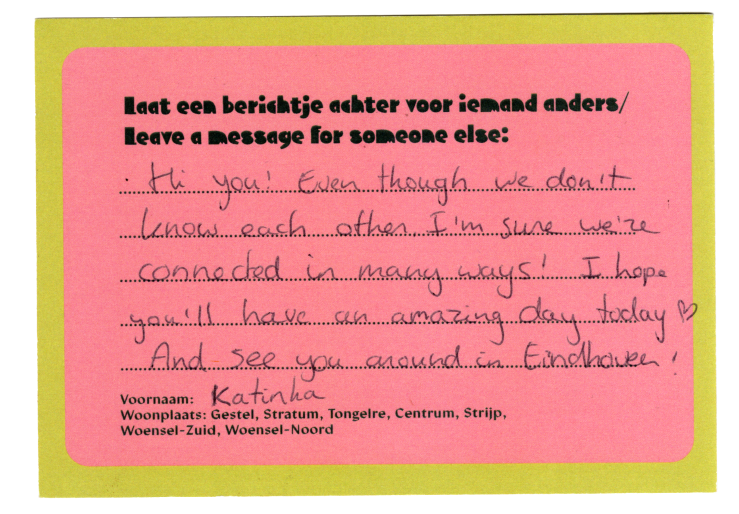 Laat een berichtje achter voor iemand anders/
Leave a message for someone else:
Hi you! Even though we don't
know each other I'm sure we're
connected in many ways! I hope
you'll have an amazing day today ♡
And see you around in Eindhoven!
Voornaam: Katinka
Woonplaats: Gestel, Stratum, Tongelre, Centrum, Strijp,
Woensel-Zuid, Woensel-Noord